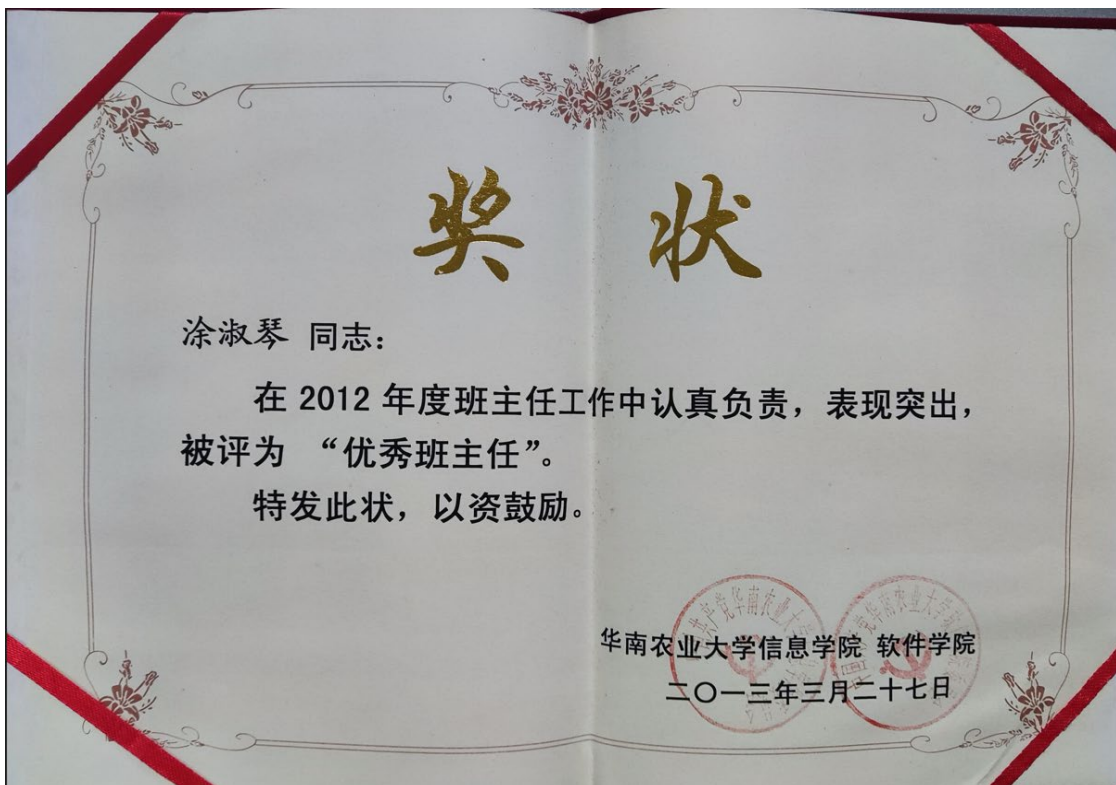 奖 状
涂淑琴 同志：
在 2012 年度班主任工作中认真负责，表现突出，
被评为 “优秀班主任”。
特发此状，以资鼓励。
华南农业大学信息学院 软件学院
二〇一三年三月二十七日